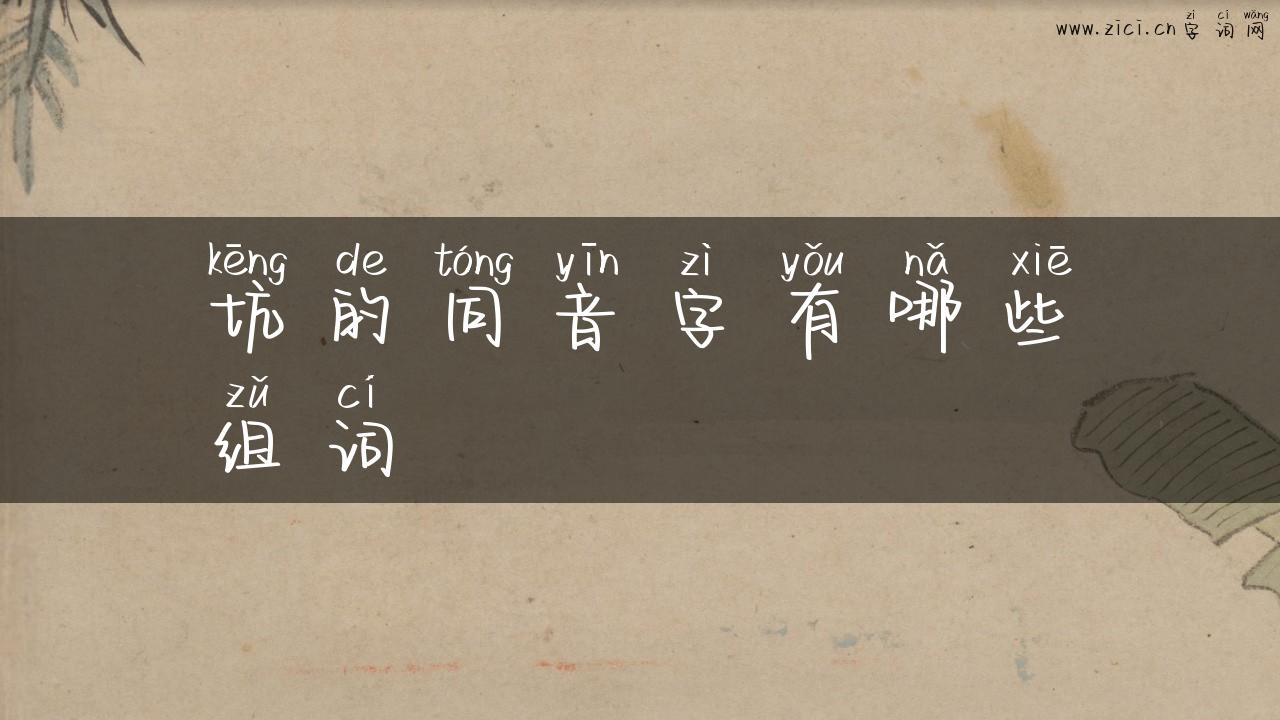 zì cí wǎng
www.zici.cn 字词网
kēng de tóng yīn zì yǒu nǎ xiē
坑的同音字有哪些
zǔ cí
组词